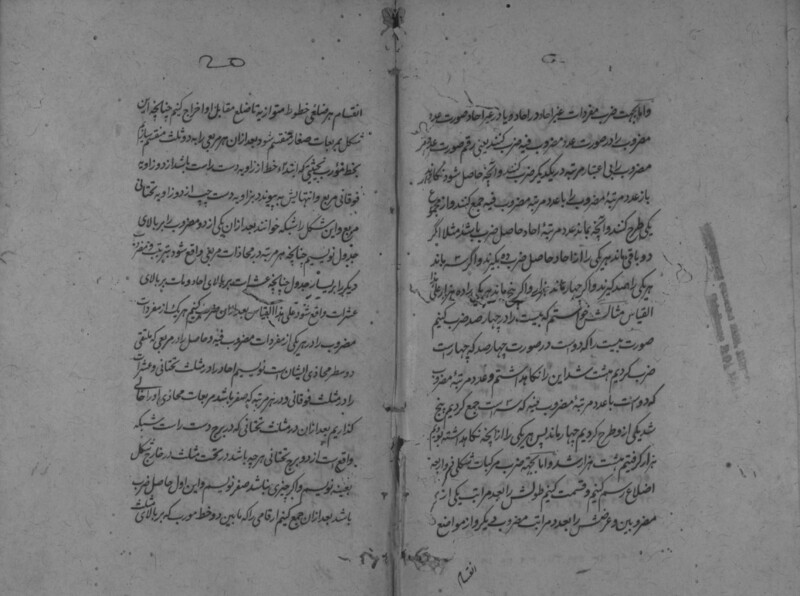 واما بجهت ضرب مفردات غیر احاد در احاد و یا در غیر احاد صورت
مضروب را در صورت مضروب فیه ضرب کنند یعنی رقم صورت
مضروب را بی اعتبار مرتبه در یکدیگر ضرب کنند و آنچه حاصل شود نگاه
باز عدد مرتبهٔ مضروب را با عدد مرتبهٔ مضروب فیه جمع کنند و از مجموع
یکی طرح کنند و آنچه بماند عدد مرتبهٔ احاد حاصل ضرب باشد مثلا اگر
دو باقی ماند هر یکی را از آحاد حاصل ضرب ده گیرند و اگر سه ماند
هر یکی را صد گیرند و اگر چهار ماند هزار و اگر پنج ماند هر یکی را ده هزار
القیاس مثالش خواستیم که بیست را در چهار صد ضرب کنیم
صورت بیست را که دوست در صورت چهار صد که چهارست
ضرب کردیم هشت شد این را نگاه داشتیم و عدد مرتبهٔ مضروب
که دو است با عدد مرتبهٔ مضروب فیه که سه است جمع کردیم پنج
شد یکی از و طرح کردیم چهار ماند پس هر یکی را از آنچه نگاه داشته بودیم
هزار گرفتیم هشت هزار شد و اما بجهة ضرب مرکبات شکلی ذو اربعه
اضلاع رسم کنیم و قسمت کنیم طولش را بعدد مراتب یکی از
مضروبین و عرضش را بعدد مراتب مضروب دیگر و از مواضع
انقسام
انقسام هر ضلعی خطوط متوازیه تا ضلع مقابل او اخراج کنیم چنانچه این
شکل بمربعات صغار منقسم شود بعد ازان هر مربعی را بدو مثلث منقسم سازیم
بخط مورب بحیثیتی که ابتداء خط از زاویه دست راست باشد از دو زاویه
فوقانی مربع و انتهایش پیوندد بزاویه دست چپ از دو زاویه تحتانی
مربع و این شکل را شبکه خوانند بعد ازان یکی از دو مضروب را بر بالای
جدول نویسیم چنانچه هر مرتبه در محاذات مربعی واقع شود بترتیب و مضروب
دیگر را بر یسار جدول چنانچه عشرات بر بالای احاد و مات بر بالای
عشرات واقع شود و علی هذا القیاس بعد ازان ضرب کنیم هر یک از مفردات
مضروب را در هر یکی از مفردات مضروب فیه و حاصل را در مربعی که ملتقی
دو سطر محاذی ایشان است نویسیم احاد را در مثلث تحتانی و عشرات
را در مثلث فوقانی و در هر مرتبه که صفر باشد مربعات محاذی او را خالی
گذاریم بعد ازان در مثلث تحتانی که در برج دست راست شبکه
واقع است از دو برج تحتانی هر چه باشد در تحت مثلث در خارج شکل
بعینه نویسیم و اگر چیزی نباشد صفر نویسیم و این اول حاصل ضرب
باشد بعد ازان جمع کنیم ارقامی را که مابین دو خط مورب که بر بالای مثلث